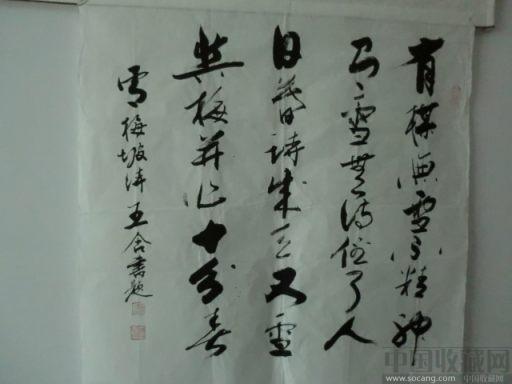 有梅無雪不精神
有雪無詩俗了人
日暮詩成天又雪
與梅并作十分春
雪梅坡诗王合書题
中国收藏网
www.socang.com 中国收藏网